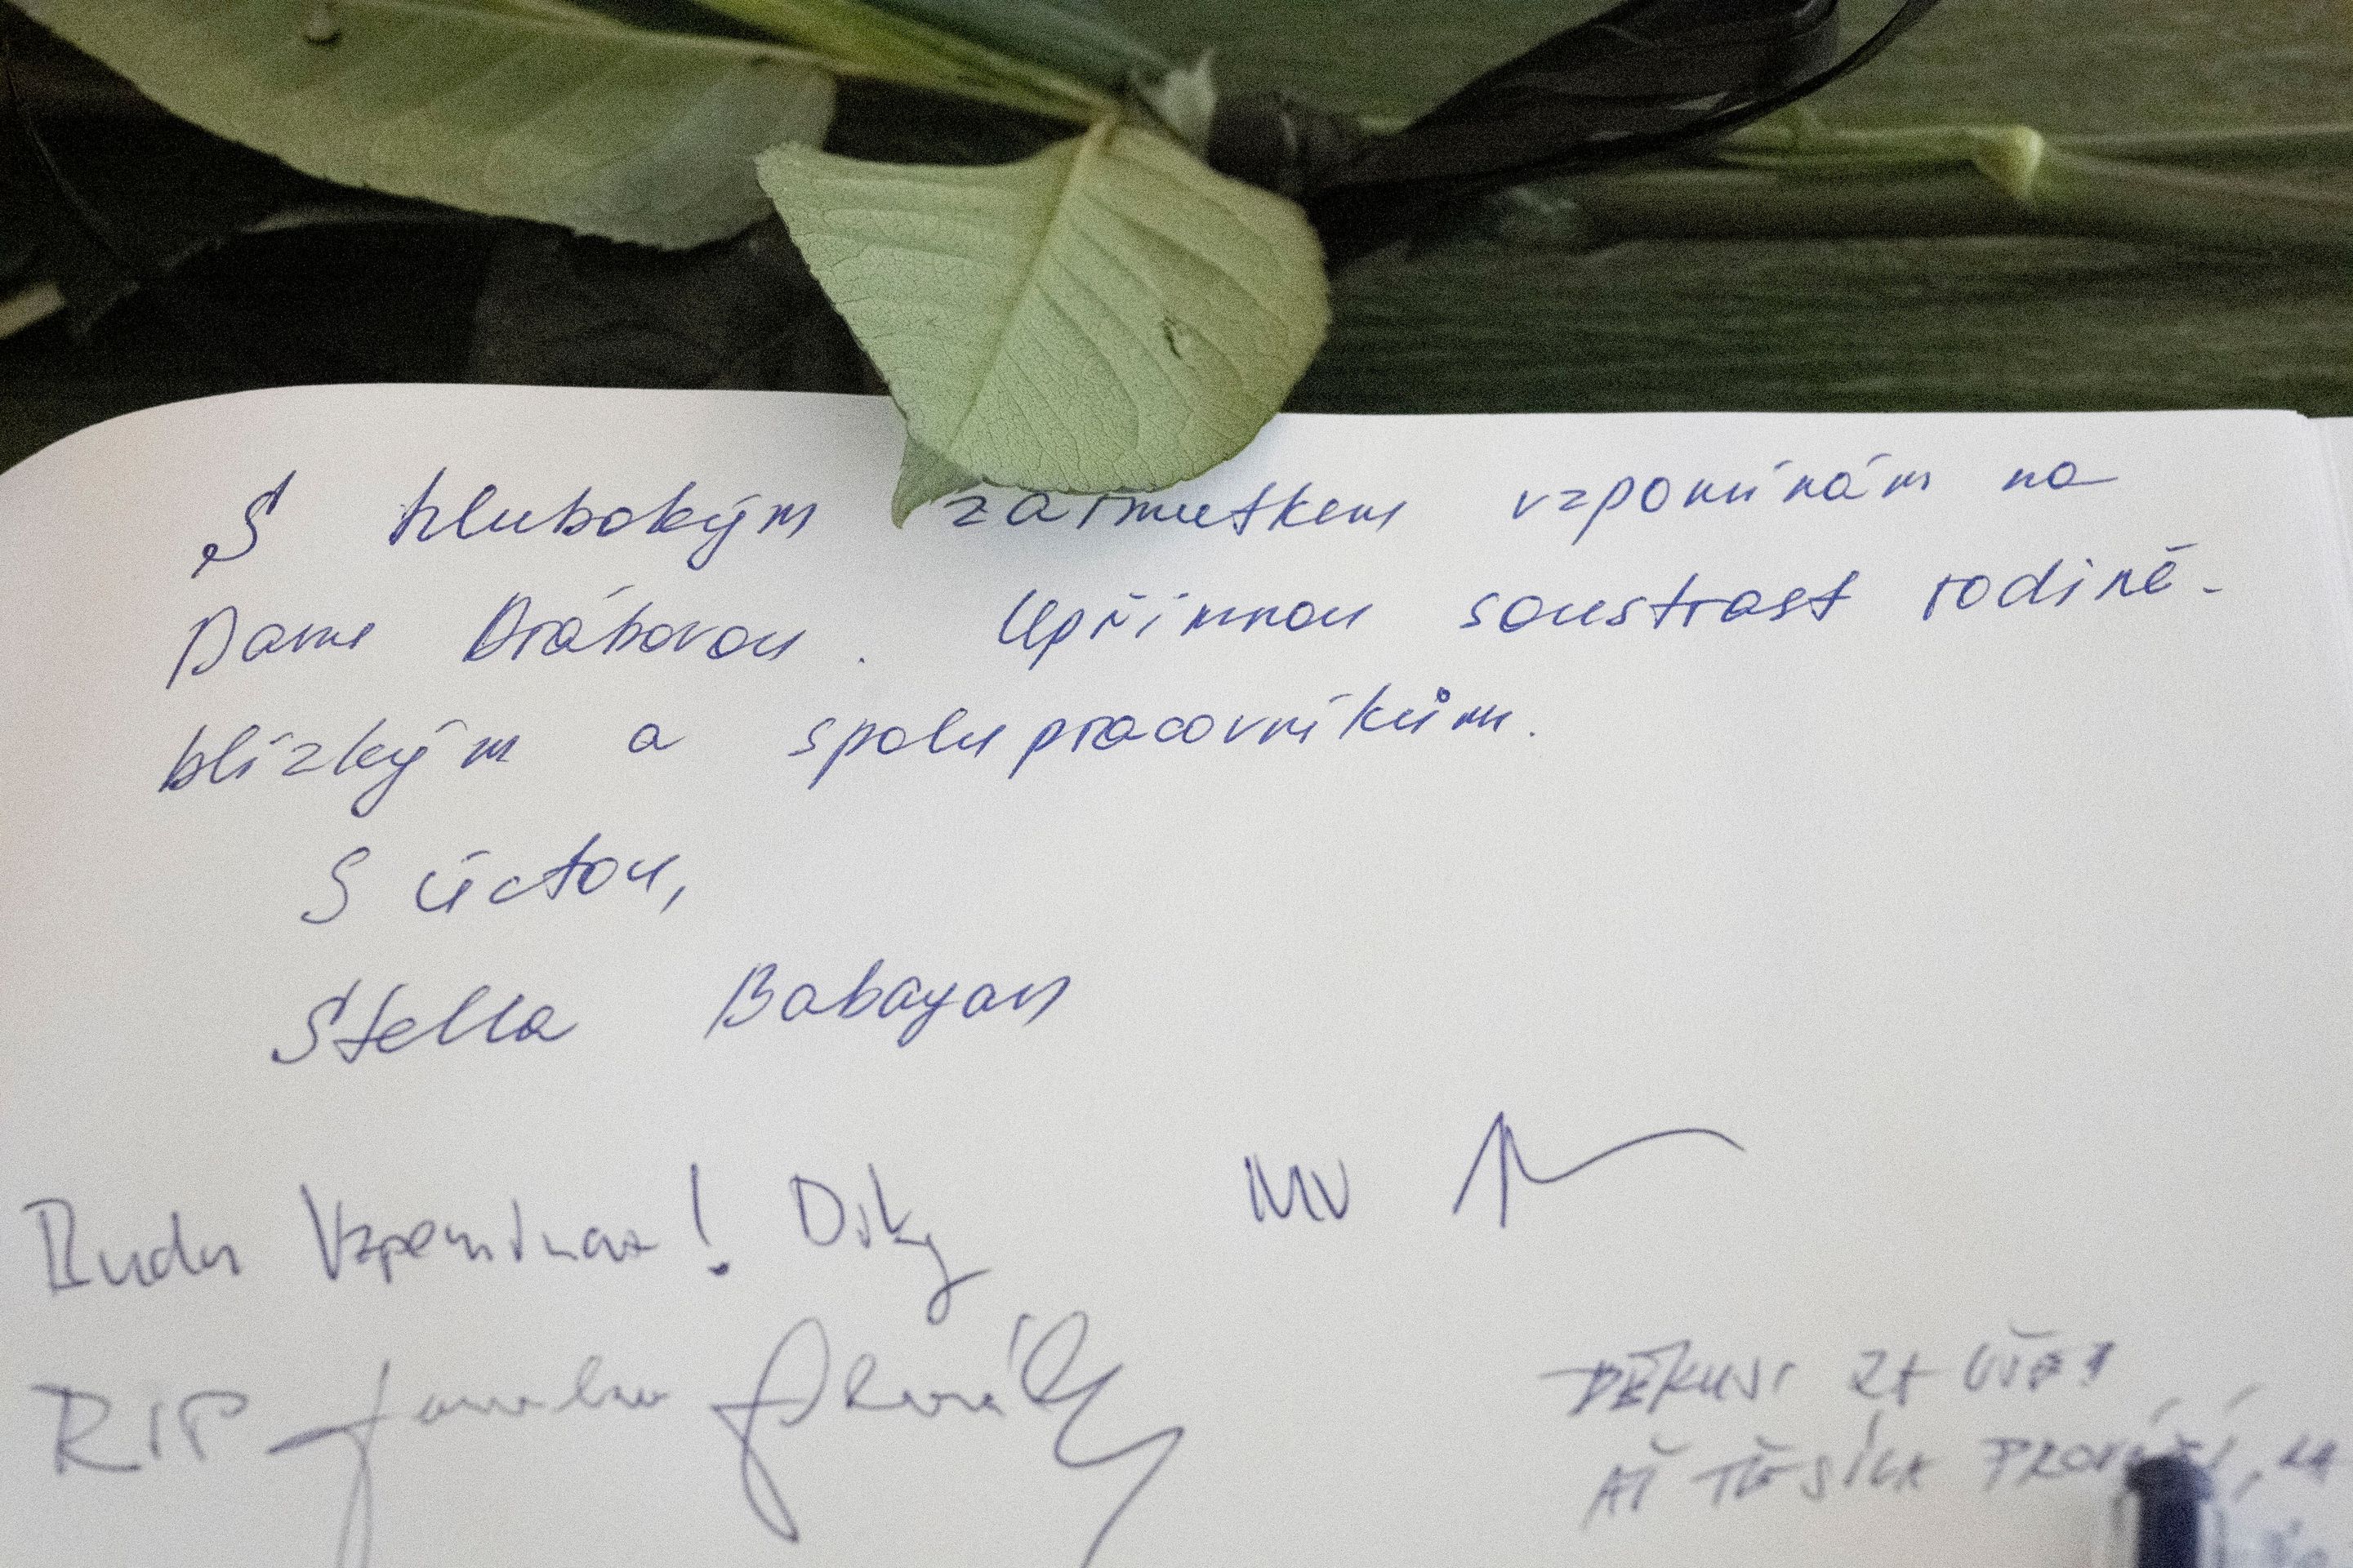 S hlubokým zármutkem vzpomínám na
Danu Drábovou. Upřímnou soustrast rodině-
blízkým a spolupracovníkům.
S úctou,
Stella Babayan
Budu Vzpomínat! Díky
RIP
DĚKUJI ZA VŠE
AŤ TĚ SÍLA PROVÁZÍ,